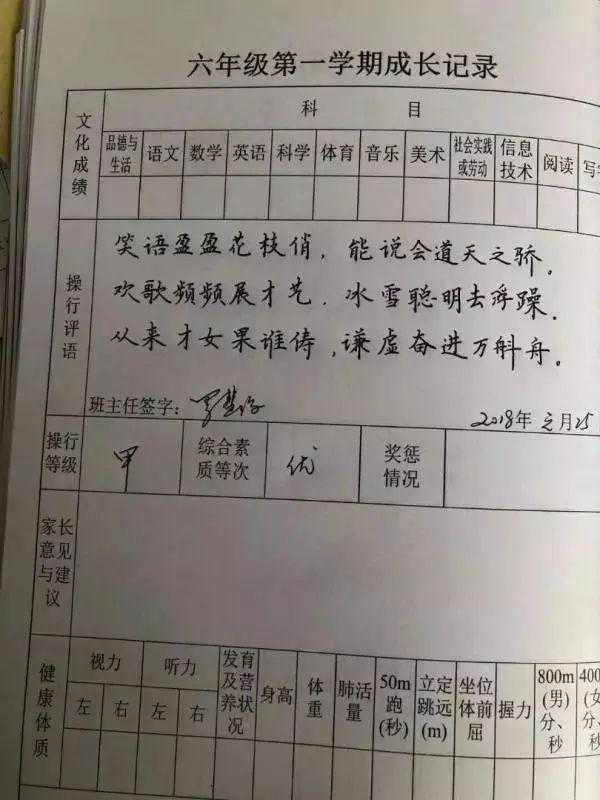 六年级第一学期成长记录
文化成绩
科 目
品德与生活 语文 数学 英语 科学 体育 音乐 美术 社会实践或劳动 信息技术 阅读
操行评语
笑语盈盈花枝俏，能说会道天之骄。
欢歌频频展才艺．冰雪聪明去浮躁．
从来才女果谁俦，谦虚奋进万斛舟。
班主任签字：
2018年 月25
操行等级 甲 综合素质等次 优 奖惩情况
家长意见与建议
健康体质
视力 听力 发育及营养状况 身高 体重 肺活量 50m跑(秒) 立定跳远(m) 坐位体前屈 握力 800m(男)分、秒
左 右 左 右